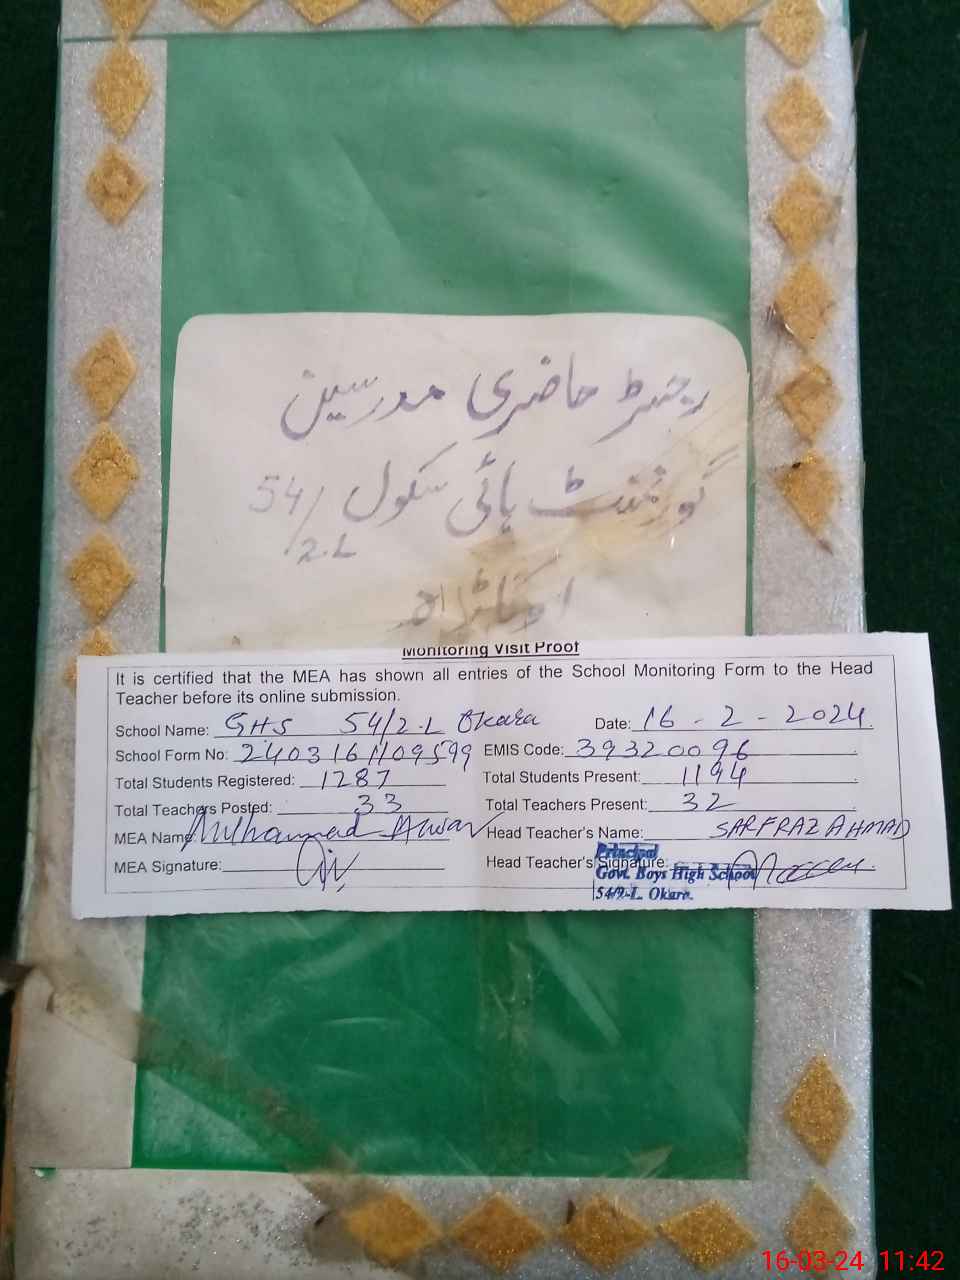 رجسٹر حاضری مدرسین
گورنمنٹ ہائی سکول 54/2.L
اوکاڑہ
Monitoring Visit Proof
It is certified that the MEA has shown all entries of the School Monitoring Form to the Head
Teacher before its online submission.
School Name: GHS 54/2.L Okara Date: 16 - 2 - 2024
School Form No: 2403161109599 EMIS Code: 39320096
Total Students Registered: 1287 Total Students Present: 1194
Total Teachers Posted: 33 Total Teachers Present: 32
MEA Name: Muhammad Head Teacher's Name: SARFRAZ AHMAD
MEA Signature: Head Teacher's Signature:
Principal
Govt. Boys High School
54/2-L. Okara.
16-03-24 11:42